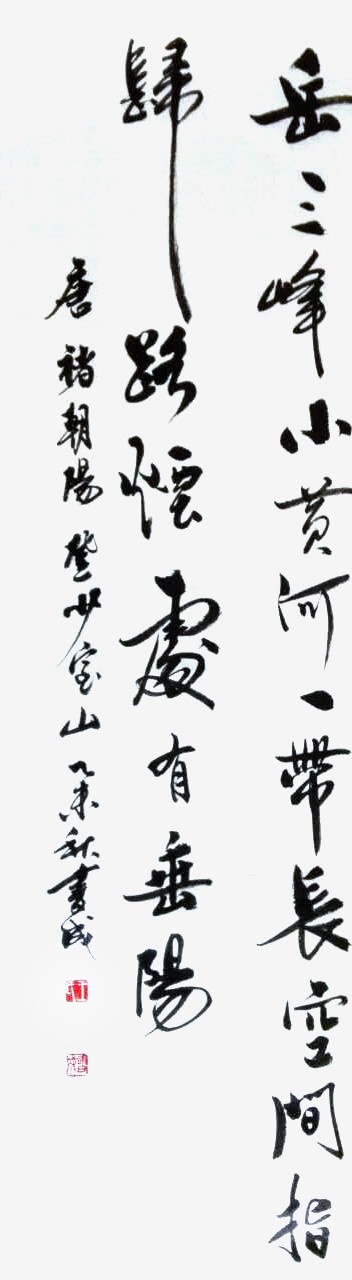 岳三峰小黄河一帶長空間指
歸路煙處有垂陽
唐褚朝陽登少室山乙未秋書成